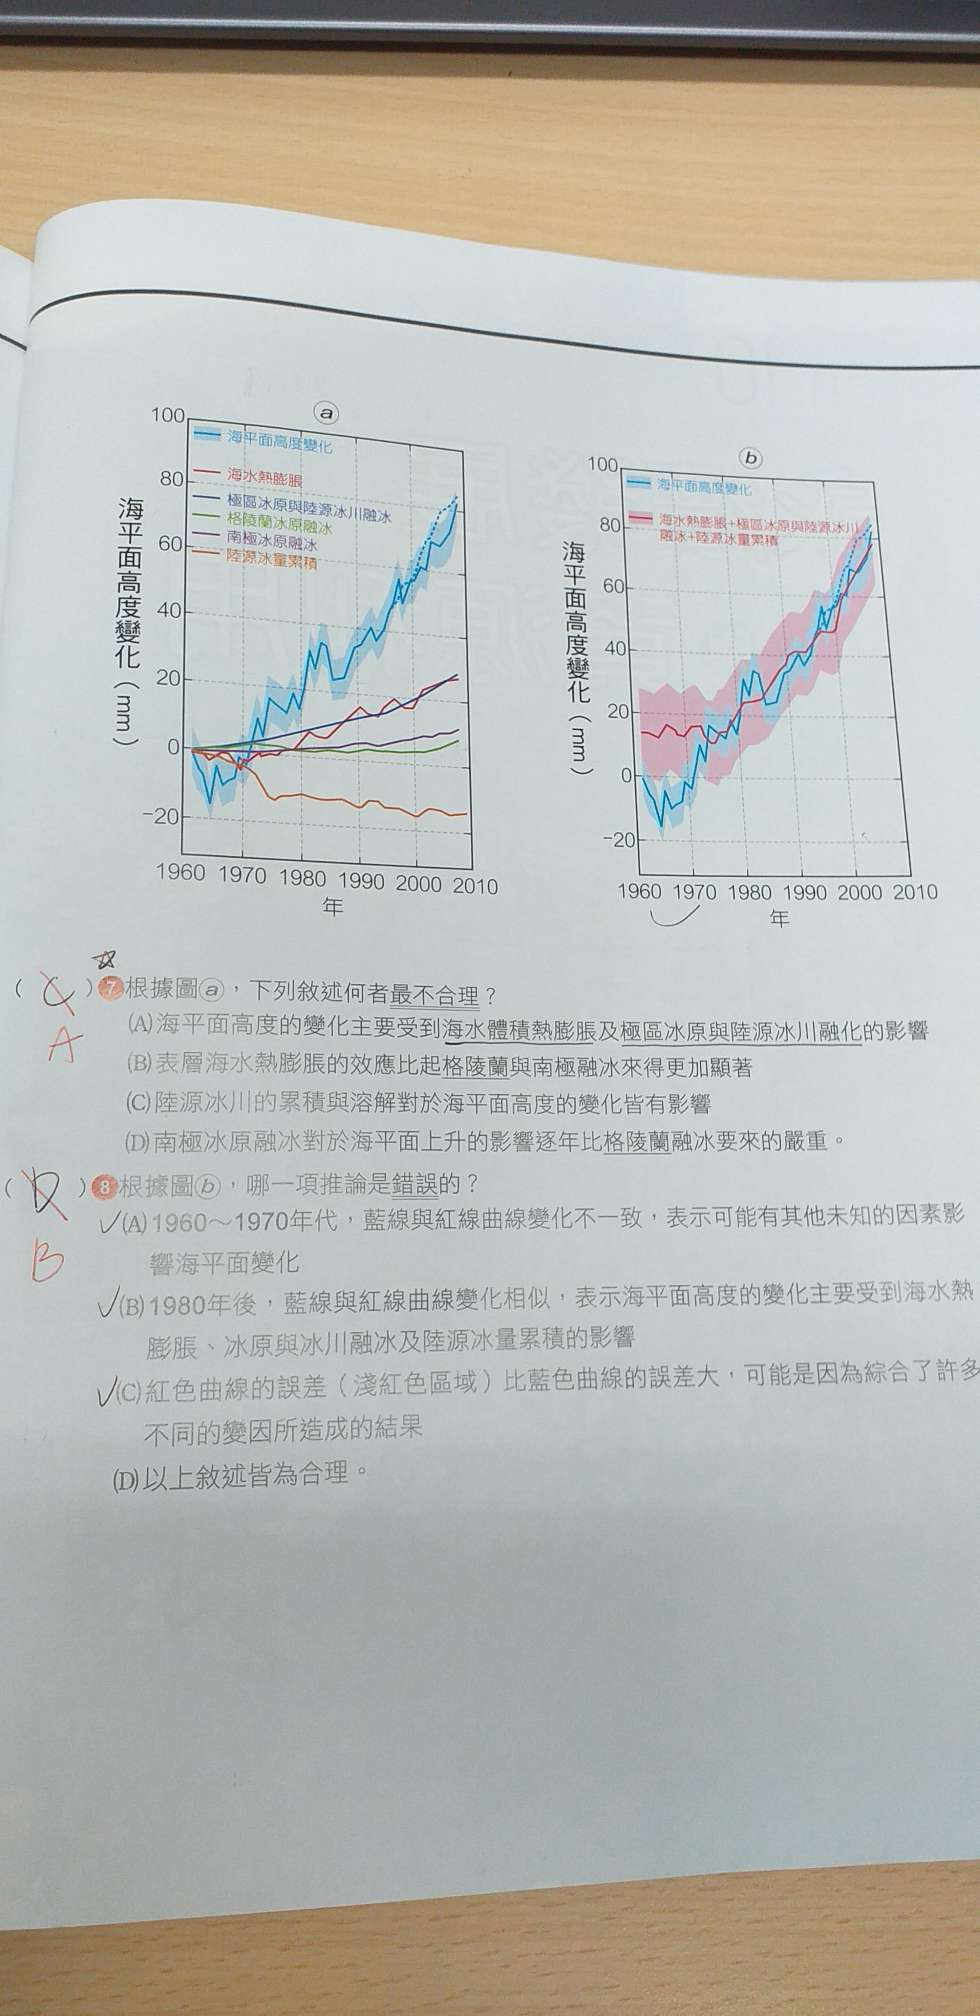 ⓐ
100
80
60
40
20
0
−20
海平面高度變化(mm)
海平面高度變化
海水熱膨脹
極區冰原與陸源冰川融冰
格陵蘭冰原融冰
南極冰原融冰
陸源冰量累積
1960 1970 1980 1990 2000 2010
年
ⓑ
100
80
60
40
20
0
−20
海平面高度變化(mm)
海平面高度變化
海水熱膨脹+極區冰原與陸源冰川
融冰+陸源冰量累積
1960 1970 1980 1990 2000 2010
年
( C ) 7 根據圖ⓐ,下列敘述何者最不合理?
A
(A)海平面高度的變化主要受到海水體積熱膨脹及極區冰原與陸源冰川融化的影響
(B)表層海水熱膨脹的效應比起格陵蘭與南極融冰來得更加顯著
(C)陸源冰川的累積與溶解對於海平面高度的變化皆有影響
(D)南極冰原融冰對於海平面上升的影響逐年比格陵蘭融冰要來的嚴重。
( D ) 8 根據圖ⓑ,哪一項推論是錯誤的?
B
(A)1960~1970年代,藍線與紅線曲線變化不一致,表示可能有其他未知的因素影
響海平面變化
(B)1980年後,藍線與紅線曲線變化相似,表示海平面高度的變化主要受到海水熱
膨脹、冰原與冰川融冰及陸源冰量累積的影響
(C)紅色曲線的誤差(淺紅色區域)比藍色曲線的誤差大,可能是因為綜合了許多
不同的變因所造成的結果
(D)以上敘述皆為合理。